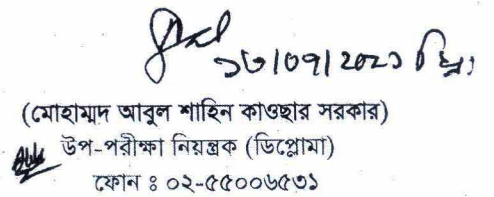 ১৩/০৭/২০২১ খ্রি:
(মোহাম্মদ আবুল শাহিন কাওছার সরকার)
উপ-পরীক্ষা নিয়ন্ত্রক (ডিপ্লোমা)
ফোন ঃ ০২-৫৫০০৬৫৩১